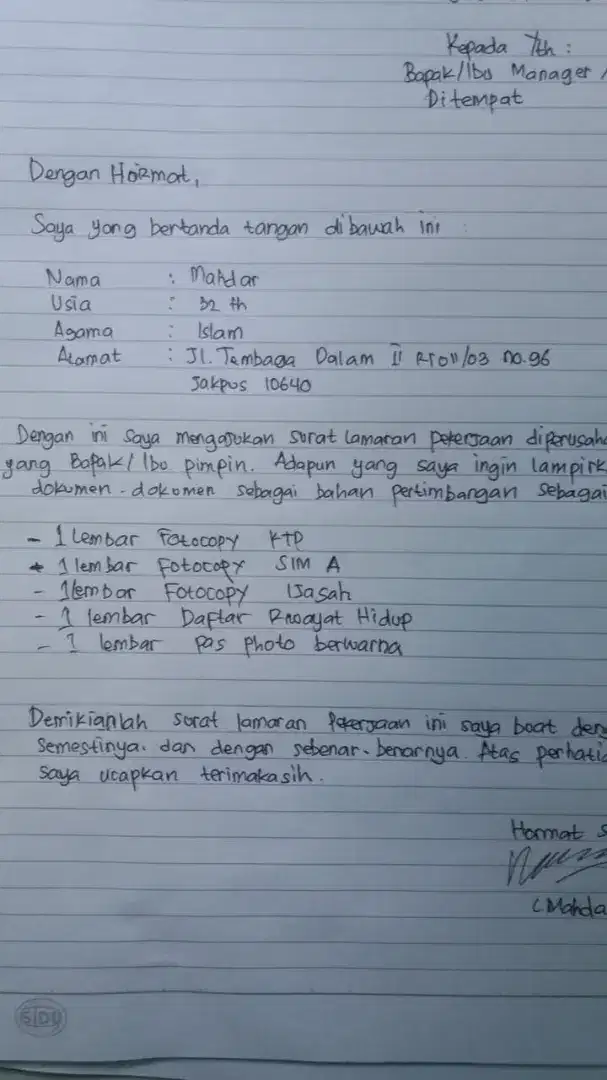 Kepada Yth :
Bapak/Ibu Manager
Ditempat
Dengan Hormat,
Saya yang bertanda tangan dibawah ini :
Nama : Mahdar
Usia : 32 th
Agama : Islam
Alamat : Jl. Tembaga Dalam II RT011/03 no.96
Jakpus 10640
Dengan ini saya mengajukan surat lamaran pekerjaan diperusaha
yang Bapak/Ibu pimpin. Adapun yang saya ingin lampirk
dokumen-dokumen sebagai bahan pertimbangan sebagai
- 1 lembar Fotocopy KTP
- 1 lembar Fotocopy SIM A
- 1 lembar Fotocopy Ijasah
- 1 lembar Daftar Riwayat Hidup
- 1 lembar pas photo berwarna
Demikianlah surat lamaran pekerjaan ini saya buat den
semestinya. dan dengan sebenar-benarnya. Atas perhatia
saya ucapkan terimakasih.
Hormat S
(Mahda
SIDU